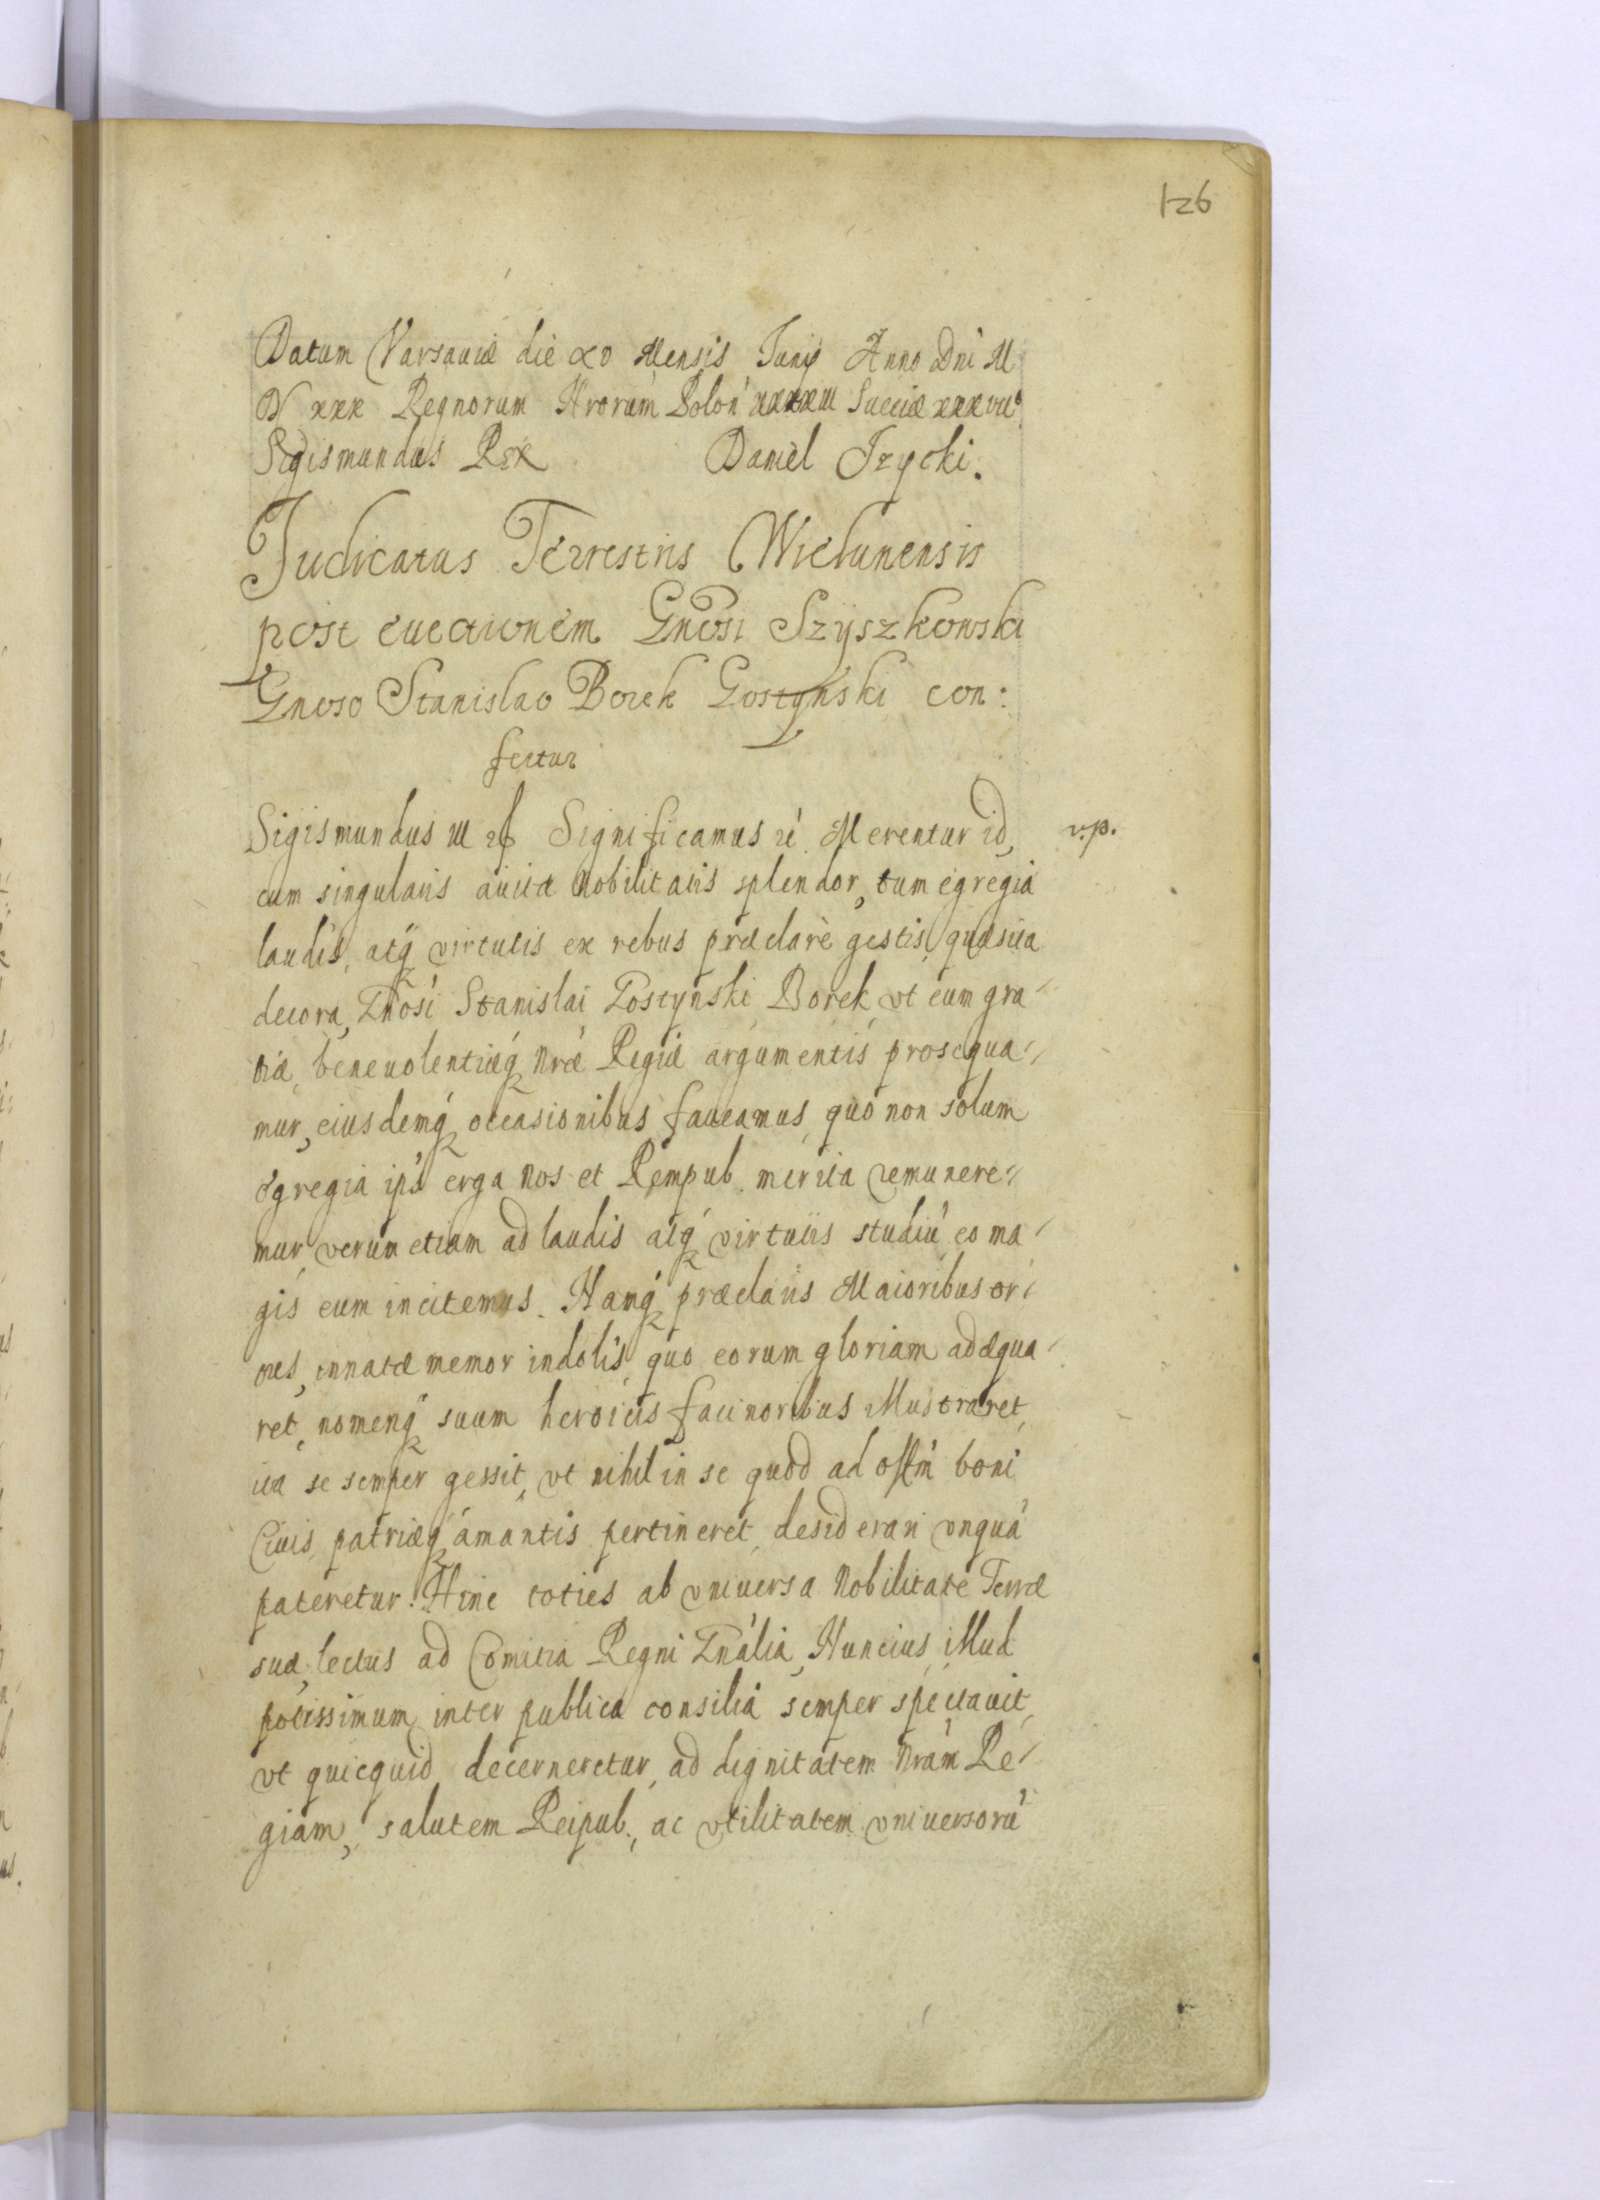 126
Datum Varsaviæ die xv Mensis Junij Anno Dni M
D xxx Regnorum Nrorum Polon xxxxiii Sueciæ xxxvii
Sigismundus Rex Daniel Izycki.
Judicatus Terrestris Wielunensis
post euectionem Gnosi Szyszkowski
Gnoso Stanislao Borek Gostynski con:
fertur
Sigismundus III Significamus Merentur id, v.p.
cum singularis auitæ Nobilitatis splendor, tum egregia
laudis, atq virtutis ex rebus præclarè gestis, quæsita
decora, Gnosi Stanislai Gostynski Borek, vt eum gra-
tiæ, beneuolentiæq Nræ Regiæ argumentis prosequa-
mur, eiusdemq occasionibus faueamus, quo non solum
egregia ips erga Nos et Rempub. merita remunere-
mur, verum etiam ad laudis atq virtutis studiu eo ma-
gis eum incitemus. Namq præclaris Maioribus ori-
ens, innatæ memor indolis, quo eorum gloriam adæqua-
ret, nomenq suum heroicis facinoribus illustraret,
ita se semper gessit, vt nihil in se quod ad offm boni
Ciuis, patriæq amantis pertineret, desiderari vnqua
pateretur. Hinc toties ab vniuersa Nobilitate Terræ
suæ, lectus ad Comitia Regni Gnalia, Nuncius, illud
potissimum inter publica consilia semper spectauit,
vt quicquid decerneretur, ad dignitatem Nram Re-
giam, salutem Reipub., ac vtilitatem vniuersoru